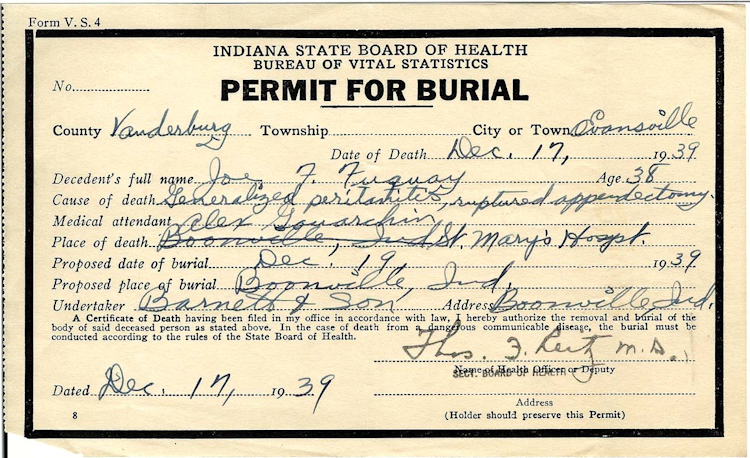 Form V. S. 4
INDIANA STATE BOARD OF HEALTH
BUREAU OF VITAL STATISTICS
No.
PERMIT FOR BURIAL
County Vanderburg Township City or Town Evansville
Date of Death Dec. 17, 1939
Decedent's full name Joe. F. Fuquay Age 38
Cause of death Generalized peritonitis, ruptured appendectomy.
Medical attendant Alex
Place of death Boonville, Ind. St. Mary's Hospt.
Proposed date of burial Dec. 19, 1939
Proposed place of burial Boonville, Ind,
Undertaker Barnett & Son Address Boonville, Ind.
A Certificate of Death having been filed in my office in accordance with law, I hereby authorize the removal and burial of the
body of said deceased person as stated above. In the case of death from a dangerous communicable disease, the burial must be
conducted according to the rules of the State Board of Health.
Thos. F. Reitz M.D.
Name of Health Officer or Deputy
SECY. BOARD OF HEALTH
Dated Dec. 17, 1939
Address
8
(Holder should preserve this Permit)